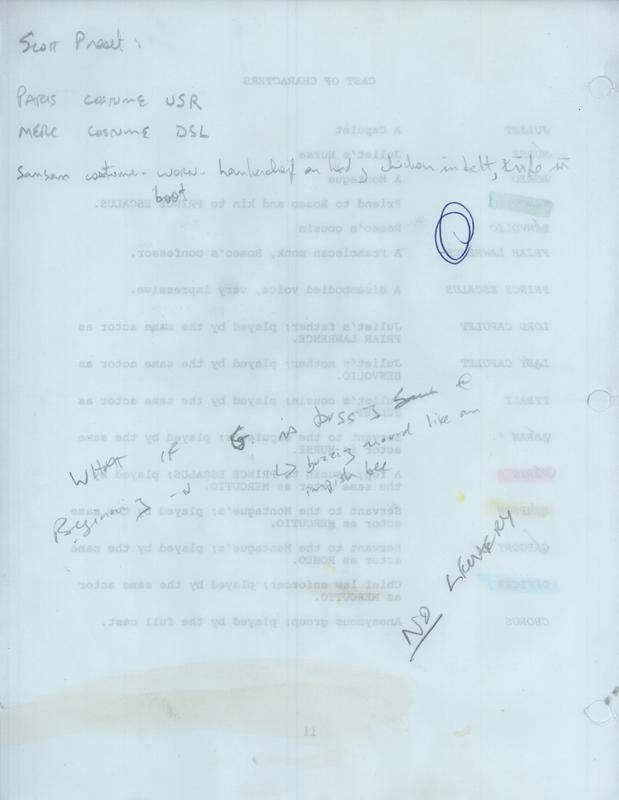 Scott Preset:
PARIS COSTUME USR
MERC COSTUME DSL
Samson costume - worn - hankerchief on head, chicken in belt, knife in
boot
WHAT IF G. is
Beginning
↳ buzzing around like an
impish bee
NO LECHERY
CAST OF CHARACTERS
JULIET A Capulet
NURSE Juliet's Nurse
ROMEO A Montague
Friend to Romeo and kin to PRINCE ESCALUS.
BENVOLIO Romeo's cousin
FRIAR LAWRENCE A Franciscan monk, Romeo's confessor.
PRINCE ESCALUS A disembodied voice, very impressive.
LORD CAPULET Juliet's father; played by the same actor as
FRIAR LAWRENCE.
LADY CAPULET Juliet's mother; played by the same actor as
BENVOLIO.
TYBALT Juliet's cousin; played by the same actor as
Servant to the Capulet's; played by the same
actor as NURSE.
PARIS cousin to PRINCE ESCALUS; played by
the same actor as MERCUTIO.
Servant to the Montague's; played by the same
actor as MERCUTIO.
GREGORY Servant to the Montague's; played by the same
actor as ROMEO.
OFFICER Chief law enforcer; played by the same actor
as MERCUTIO.
CHORUS Anonymous group; played by the full cast.
ii